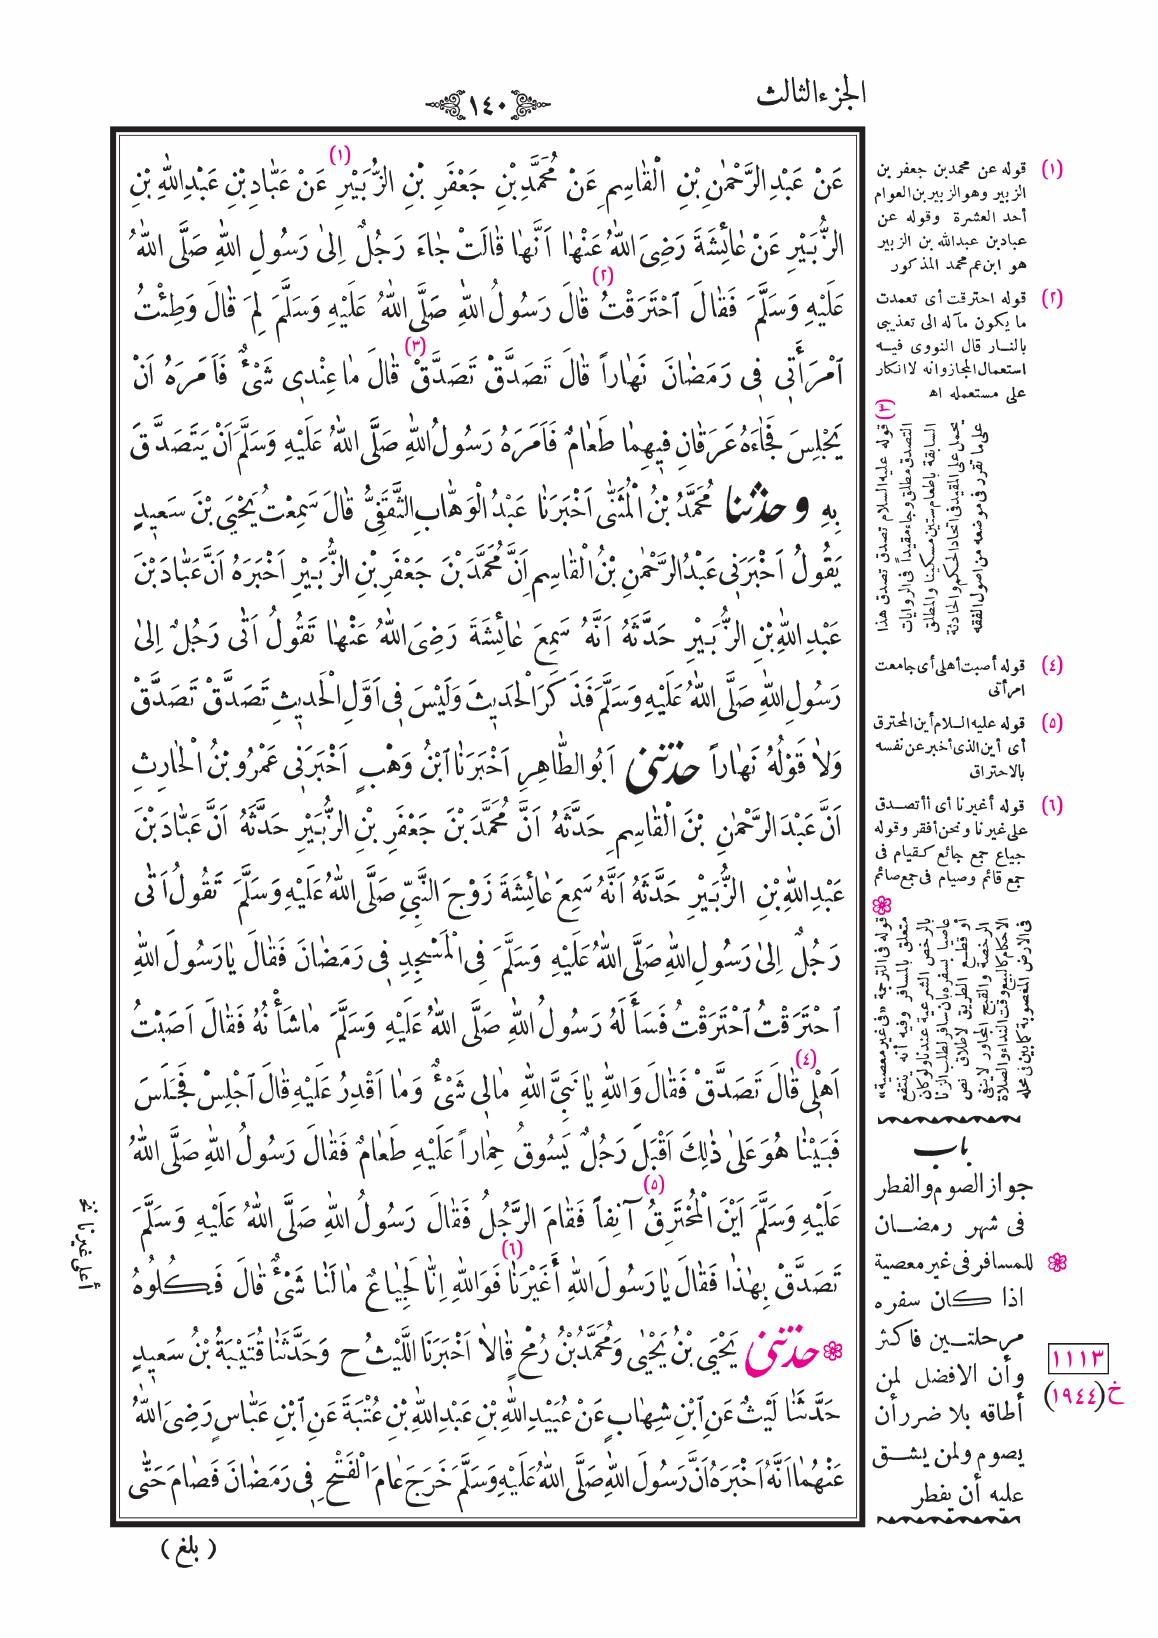 الجزء الثالث
١٤٠
عَنْ عَبْدِ الرَّحْمٰنِ بْنِ الْقَاسِمِ عَنْ مُحَمَّدِ بْنِ جَعْفَرِ بْنِ الزُّبَيْرِ (١) عَنْ عَبَّادِ بْنِ عَبْدِ اللّٰهِ بْنِ
الزُّبَيْرِ عَنْ عَائِشَةَ رَضِىَ اللّٰهُ عَنْهَا اَنَّهَا قَالَتْ جَاءَ رَجُلٌ اِلىٰ رَسُولِ اللّٰهِ صَلَّى اللّٰهُ
عَلَيْهِ وَسَلَّمَ فَقَالَ اَحْتَرَقْتُ (٢) قَالَ رَسُولُ اللّٰهِ صَلَّى اللّٰهُ عَلَيْهِ وَسَلَّمَ لِمَ قَالَ وَطِئْتُ
اَمْرَأَتِى فِى رَمَضَانَ نَهَاراً قَالَ تَصَدَّقْ تَصَدَّقْ (٣) قَالَ مَا عِنْدِى شَىْءٌ فَاَمَرَهُ اَنْ
يَجْلِسَ فَجَاءَهُ عَرَقَانِ فِيهِمَا طَعَامٌ فَاَمَرَهُ رَسُولُ اللّٰهِ صَلَّى اللّٰهُ عَلَيْهِ وَسَلَّمَ اَنْ يَتَصَدَّقَ
بِهِ وحدثنا مُحَمَّدُ بْنُ الْمُثَنّٰى اَخْبَرَنَا عَبْدُ الْوَهَّابِ الثَّقَفِىُّ قَالَ سَمِعْتُ يَحْيَى بْنَ سَعِيدٍ
يَقُولُ اَخْبَرَنِى عَبْدُ الرَّحْمٰنِ بْنُ الْقَاسِمِ اَنَّ مُحَمَّدَ بْنَ جَعْفَرِ بْنِ الزُّبَيْرِ اَخْبَرَهُ اَنَّ عَبَّادَ بْنَ
عَبْدِ اللّٰهِ بْنِ الزُّبَيْرِ حَدَّثَهُ اَنَّهُ سَمِعَ عَائِشَةَ رَضِىَ اللّٰهُ عَنْهَا تَقُولُ اَتٰى رَجُلٌ اِلىٰ
رَسُولِ اللّٰهِ صَلَّى اللّٰهُ عَلَيْهِ وَسَلَّمَ فَذَكَرَ الْحَدِيثَ وَلَيْسَ فِى اَوَّلِ الْحَدِيثِ تَصَدَّقْ تَصَدَّقْ
وَلَا قَوْلُهُ نَهَاراً حدثنى اَبُو الطَّاهِرِ اَخْبَرَنَا اَبْنُ وَهْبٍ اَخْبَرَنِى عَمْرُو بْنُ الْحَارِثِ
اَنَّ عَبْدَ الرَّحْمٰنِ بْنَ الْقَاسِمِ حَدَّثَهُ اَنَّ مُحَمَّدَ بْنَ جَعْفَرِ بْنِ الزُّبَيْرِ حَدَّثَهُ اَنَّ عَبَّادَ بْنَ
عَبْدِ اللّٰهِ بْنِ الزُّبَيْرِ حَدَّثَهُ اَنَّهُ سَمِعَ عَائِشَةَ زَوْجَ النَّبِىِّ صَلَّى اللّٰهُ عَلَيْهِ وَسَلَّمَ تَقُولُ اَتٰى
رَجُلٌ اِلىٰ رَسُولِ اللّٰهِ صَلَّى اللّٰهُ عَلَيْهِ وَسَلَّمَ فِى الْمَسْجِدِ فِى رَمَضَانَ فَقَالَ يَا رَسُولَ اللّٰهِ
اَحْتَرَقْتُ اَحْتَرَقْتُ فَسَأَلَهُ رَسُولُ اللّٰهِ صَلَّى اللّٰهُ عَلَيْهِ وَسَلَّمَ مَا شَأْنُهُ فَقَالَ اَصَبْتُ
اَهْلِى (٤) قَالَ تَصَدَّقْ فَقَالَ وَاللّٰهِ يَا نَبِىَّ اللّٰهِ مَالِى شَىْءٌ وَمَا اَقْدِرُ عَلَيْهِ قَالَ اَجْلِسْ فَجَلَسَ
فَبَيْنَا هُوَ عَلىٰ ذٰلِكَ اَقْبَلَ رَجُلٌ يَسُوقُ حِمَاراً عَلَيْهِ طَعَامٌ فَقَالَ رَسُولُ اللّٰهِ صَلَّى اللّٰهُ
عَلَيْهِ وَسَلَّمَ اَيْنَ الْمُحْتَرِقُ (٥) آنِفاً فَقَامَ الرَّجُلُ فَقَالَ رَسُولُ اللّٰهِ صَلَّى اللّٰهُ عَلَيْهِ وَسَلَّمَ
تَصَدَّقْ بِهٰذَا فَقَالَ يَا رَسُولَ اللّٰهِ أَغَيْرَنَا (٦) فَوَاللّٰهِ اِنَّا لَجِيَاعٌ مَالَنَا شَىْءٌ قَالَ فَكُلُوهُ
حدثنى يَحْيَى بْنُ يَحْيٰى وَمُحَمَّدُ بْنُ رُمْحٍ قَالَا اَخْبَرَنَا اللَّيْثُ ح وَحَدَّثَنَا قُتَيْبَةُ بْنُ سَعِيدٍ
حَدَّثَنَا لَيْثٌ عَنِ اَبْنِ شِهَابٍ عَنْ عُبَيْدِ اللّٰهِ بْنِ عَبْدِ اللّٰهِ بْنِ عُتْبَةَ عَنِ اَبْنِ عَبَّاسٍ رَضِىَ اللّٰهُ
عَنْهُمَا اَنَّهُ اَخْبَرَهُ اَنَّ رَسُولَ اللّٰهِ صَلَّى اللّٰهُ عَلَيْهِ وَسَلَّمَ خَرَجَ عَامَ الْفَتْحِ فِى رَمَضَانَ فَصَامَ حَتّٰى
( بلغ )
(١) قوله عن محمد بن جعفر بن
الزبير وهو الزبير بن العوام
أحد العشرة وقوله عن
عباد بن عبدالله بن الزبير
هو ابن عم محمد المذكور
(٢) قوله احترقت أى تعمدت
ما يكون مآله الى تعذيبى
بالنار قال النووى فيه
استعمال المجاز وانه لا انكار
على مستعمله اه
(٣) قوله عليه السلام تصدق تصدق هذا
التصدق مطلق وجاء مقيداً فى الروايات
السابقة باطعام ستين مسكينا والمطلق
يحمل على المقيد فى اتحاد الحكم والحادثة
على ما تقرر فى موضعه من اصول الفقه
(٤) قوله أصبت أهلى أى جامعت
امرأتى
(٥) قوله عليه السلام أين المحترق
أى أين الذى أخبر عن نفسه
بالاحتراق
(٦) قوله أغيرنا أى أأتصدق
على غيرنا ونحن أفقر وقوله
جياع جمع جائع كقيام فى
جمع قائم وصيام فى جمع صائم
قوله فى الترجمة «فى غير معصية»
متعلق بالمسافر وفيه أنه ينتفع
بالرخص الشرعية عندنا ولو كان
عاصيا بسفره بأن سافر لطلب الزنا
أو قطع الطريق لاطلاق نص
الرخصة والقبح المجاور لا ينفى
الاحكام كالبيع وقت النداء والصلاة
فى الارض المغصوبة كما بين فى محله
باب
جواز الصوم والفطر
فى شهر رمضان
للمسافر فى غير معصية
اذا كان سفره
مرحلتين فاكثر
وأن الافضل لمن
أطاقه بلا ضرر أن
يصوم ولمن يشق
عليه أن يفطر
١١١٣
خ (١٩٤٤)
أعلى غيرنا نخ